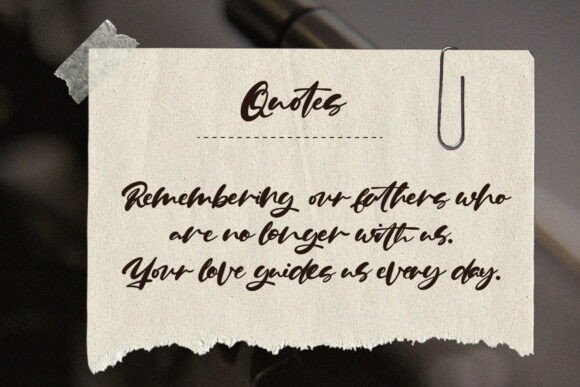 Quotes
Remembering our fathers who
are no longer with us.
Your love guides us every day.